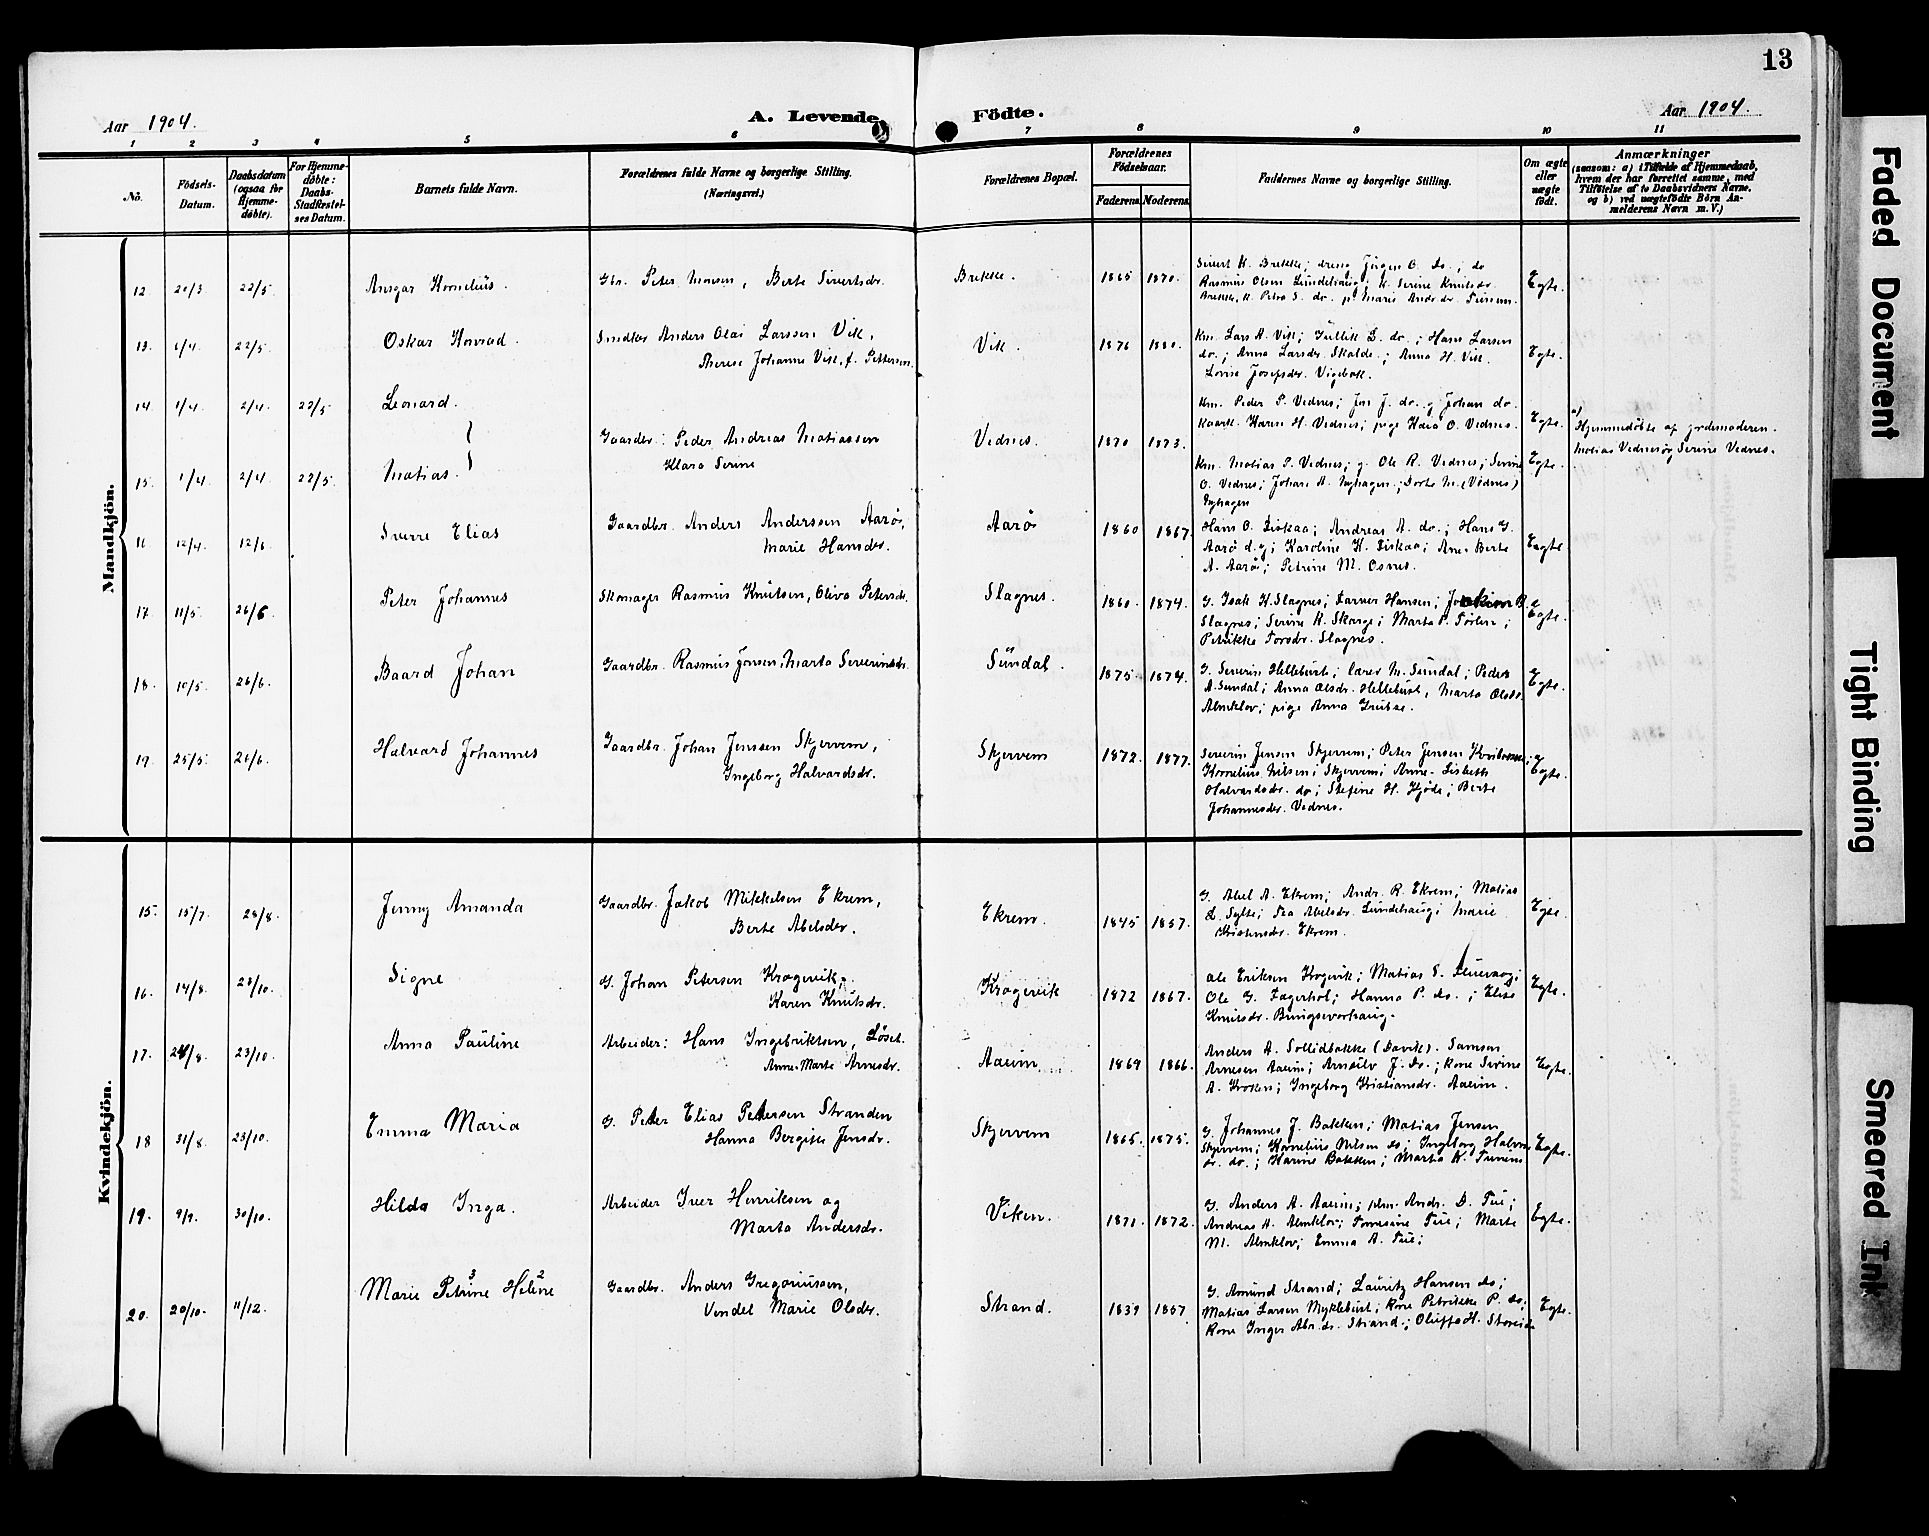 13
Aar 1904.
A. Levende
Födte.
Aar 1904.
1 2 3 4 5 6 7 8 9 10 11
No.
Födsels-
Datum.
Daabsdatum
(ogsaa for
Hjemme-
döbte).
For Hjemme-
döbte:
Daabs-
Stadfæstel-
ses Datum.
Barnets fulde Navn.
Forældrenes fulde Navne og borgerlige Stilling.
(Næringsvei.)
Forældrenes Bopæl.
Forældrenes
Födselsaar.
Faderens Moderens
Faddernes Navne og borgerlige Stilling.
Om ægte
eller
uægte
födt.
Anmærkninger
(saasom: a) i Tilfælde af Hjemmedaab,
hvem der har forrettet samme, med
Tilföielse af to Daabsvidners Navne,
og b) ved uægtefödte Börn An-
melderens Navn m. V.)
Mandkjön.
12 20/3 22/5 Ansgar Kornelius. Gbr. Peter Monsen, Berte Sivertsdr. Brekke. 1865 1870. Sivert K. Brekke; dreng Jörgen O. do.; do
Rasmus Olsen Lundehaug; k. Serine Knutsdr.
Brekke, k. Petra S. do. p. Marie Andr.dr.
Egte.
13. 1/4. 22/5. Oskar Konrad. Snedker Anders Olai Larssen Vik,
Therese Johanne Vik, f. Pettersen. Vik. 1876 1880. Km. Lars A. Vik; L. do.; Hans Larsen
do.; Anna Larsdr. Skalde.; Anna H. Vik.
Lovise Josefsdr. Vigebak.
Egte.
14. 1/4. 2/4. 22/5 Leonard.
Km. Peder P. Vednes; Jon J. do. g Johan do.
Kaark. Karen H. Vednes; pige Kaia O. Vednes.
Egte.
a) Hjemmedøbte af jordemoderen.
Gaardbr. Peder Andreas Matiassen
Klara Serine
Vednes. 1870 1873.
Matias Vednes og Serine Vednes.
15. 1/4. 2/4. 22/5. Matias.
Km. Matias P. Vednes; g. Ole R. Vednes; Serine
O. Vednes; Johan A. Nyhagen; Dorte M. (Vednes)
Nyhagen
Egte.
16 12/4. 12/6. Sverre Elias Gaardbr. Anders Anderssen Aarø,
Marie Hansdr. Aarø 1860 1867. Hans O. Liskaa; Andreas A. do.; Hans G.
Aarø d.g; Karoline K. Liskaa; Ane-Berte
A. Aarø; Petrine M. Osnes.
Eegte
17. 11/5. 26/6 Peter Johannes Skomager Rasmus Knutsen, Oliva Petersdr. Slagnes. 1860. 1874. G. Isak H. Slagnes; Farver Hansen; Joakim B.
Slagnes; Serine K. Skorge; Marta P.
Petrikke Torsdr. Slagnes.
Egte.
18. 10/5. 26/6. Baard Johan Gaardbr. Rasmus Jonsen, Marta Severinsdr. Sundal. 1875. 1874. G. Severin Hellebust; lærer M. Sundal; Peder
A. Sundal; Anna Olsdr. Hellebust, Marta Olsdr.
Almklov; pige Anna
Egte.
19. 25/5. 26/6. Halvard Johannes Gaardbr. Johan Jenssen Skjervem,
Ingeborg Halvardsdr. Skjervem 1872. 1877. Severin Jensen Skjervem; Peter Jensen
Kornelius Nilsen; Skjervem; Anne-Lisbeth
Halvardsdr. do; Stefine H. Hjøde; Berte
Johannesdr. Vednes.
Egte.
Kvindekjön.
15. 15/7. 28/8. Jenny Amanda Gaardbr. Jakob Mikkelsen Ekrem,
Berte Abelsdr. Ekrem. 1845 1857. G. Abel A. Ekrem; Andr. R. Ekrem; Matias
L. Sylte; Abelsdr. Lundehaug; Marie
Kristensdr. Ekrem.
Egte.
16. 14/8. 23/10. Signe G. Johan Petersen Kragevik,
Karen Knutsdr. Kragevik 1872 1867. Ole Eriksen Kragevik; Matias S.
Ole G. Fagerhol; Hanna P. do.; Elise
Knutsdr. Bringsvorhaug.
Egte.
17. 28/8. 23/10. Anna Pauline Arbeider: Hans Ingebriktsen, Løset.
Anne-Marte Arnesdr. Aaeim 1869 1866. Anders A. Sollidbakke (Davik). Samson
Arnesen Aaeim; Arnoliv J. do.; Kone Sirine
A. Kroken; Ingeborg Kristiansdr. Aaeim.
Egte.
18 31/8. 23/10. Emma Maria G. Peter Elias Petersen Stranden
Hanna Bergitte Jensdr. Skjervem 1865. 1875. G. Johannes J. Bakken; Matias Jensen
Skjervem; Kornelius Nilsen do; Ingeborg Halvar
dr. do.; Karine Bakken; Marta K.
Egte.
19. 9/9. 30/10. Hilda Inga. Arbeider Iver Henriksen og
Marta Andersdr. Viken. 1871. 1872. G. Anders A. Aaeim; plm. Andr. D. Tue;
Andreas A. Almklov; Tomesine Tue; Marte
M. Almklov; Emma A. Tue;
Egte.
20. 20/10. 11/12. Marie Petrine 3 Helene 2 Gaardbr. Anders Gregoriussen,
Vendel Marie Olsdr. Strand. 1839 1857 G. Amund Strand; Lauritz Hansen do;
Matias Larsen Myklebust; Kone Petrikke P. do;
Kone Inger Abr.dr. Strand; H.
Egte.
Faded Document
Tight Binding
Smeared Ink